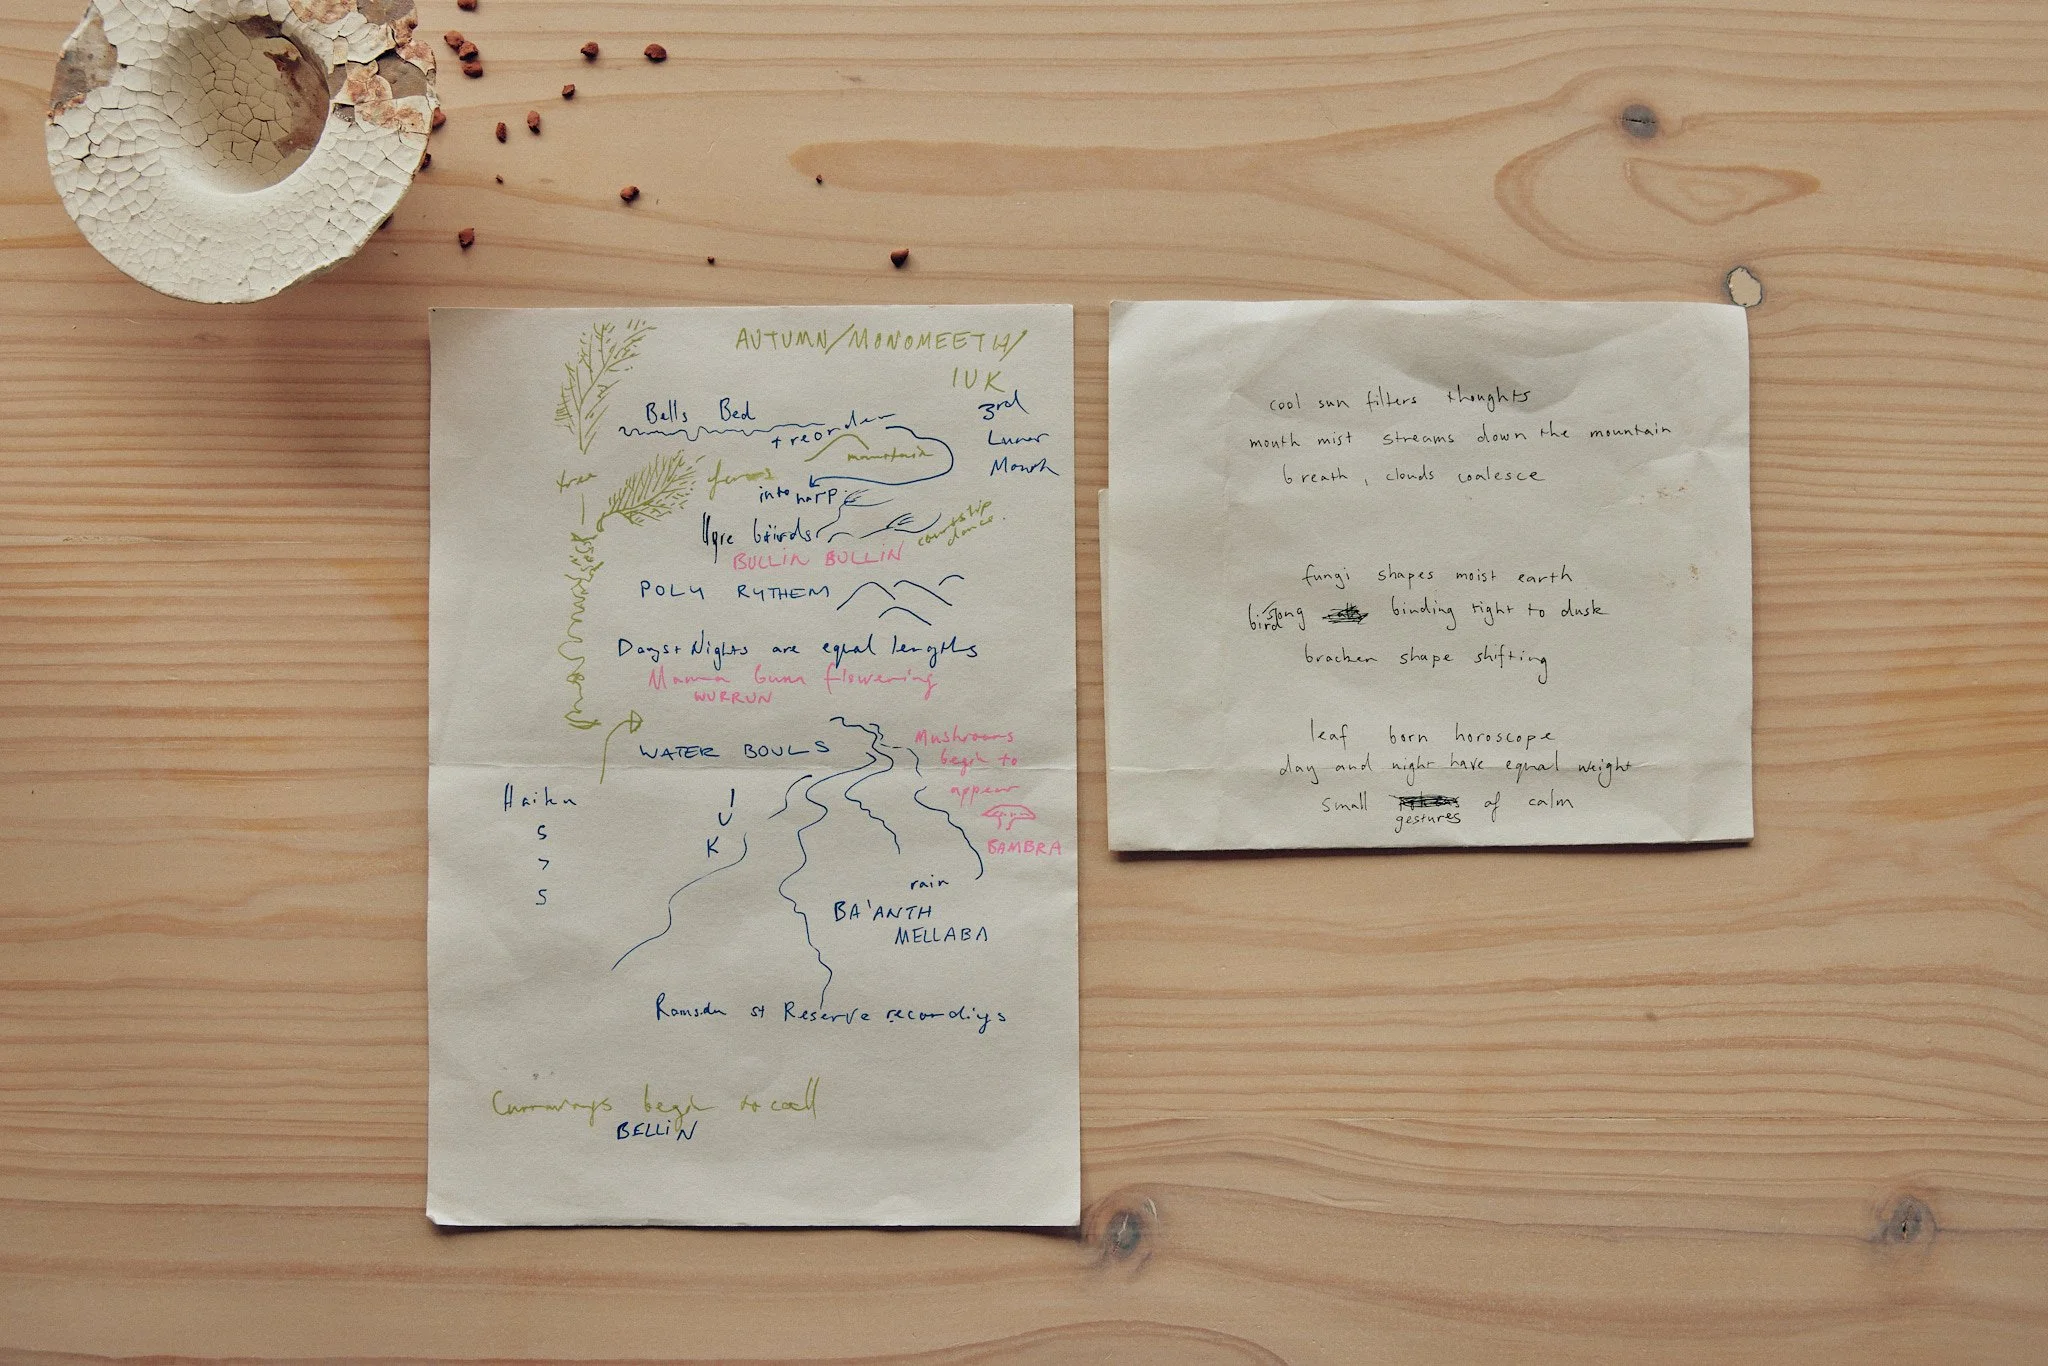 AUTUMN/MONOMEETH/
IUK
3rd
Lunar
Month
Bells Bed
+ reorder
mountain
tree
ferns
into harp
lyre biirds
courtship
dance.
BULLIN BULLIN
POLY RYTHEM
Days + Nights are equal lengths
Manna Gum flowering
WURRUN
WATER BOULS
Mushrooms
begin to
appear
BAMBRA
Haiku
5
7
5
I
U
K
rain
BA'ANTH
MELLABA
Ramsden st Reserve recordigs
begin to call
BELLIN
cool sun filters thoughts
mouth mist streams down the mountain
breath, clouds coalesce
fungi shapes moist earth
birdsong binding tight to dusk
bracken shape shifting
leaf born horoscope
day and night have equal weight
small gestures of calm